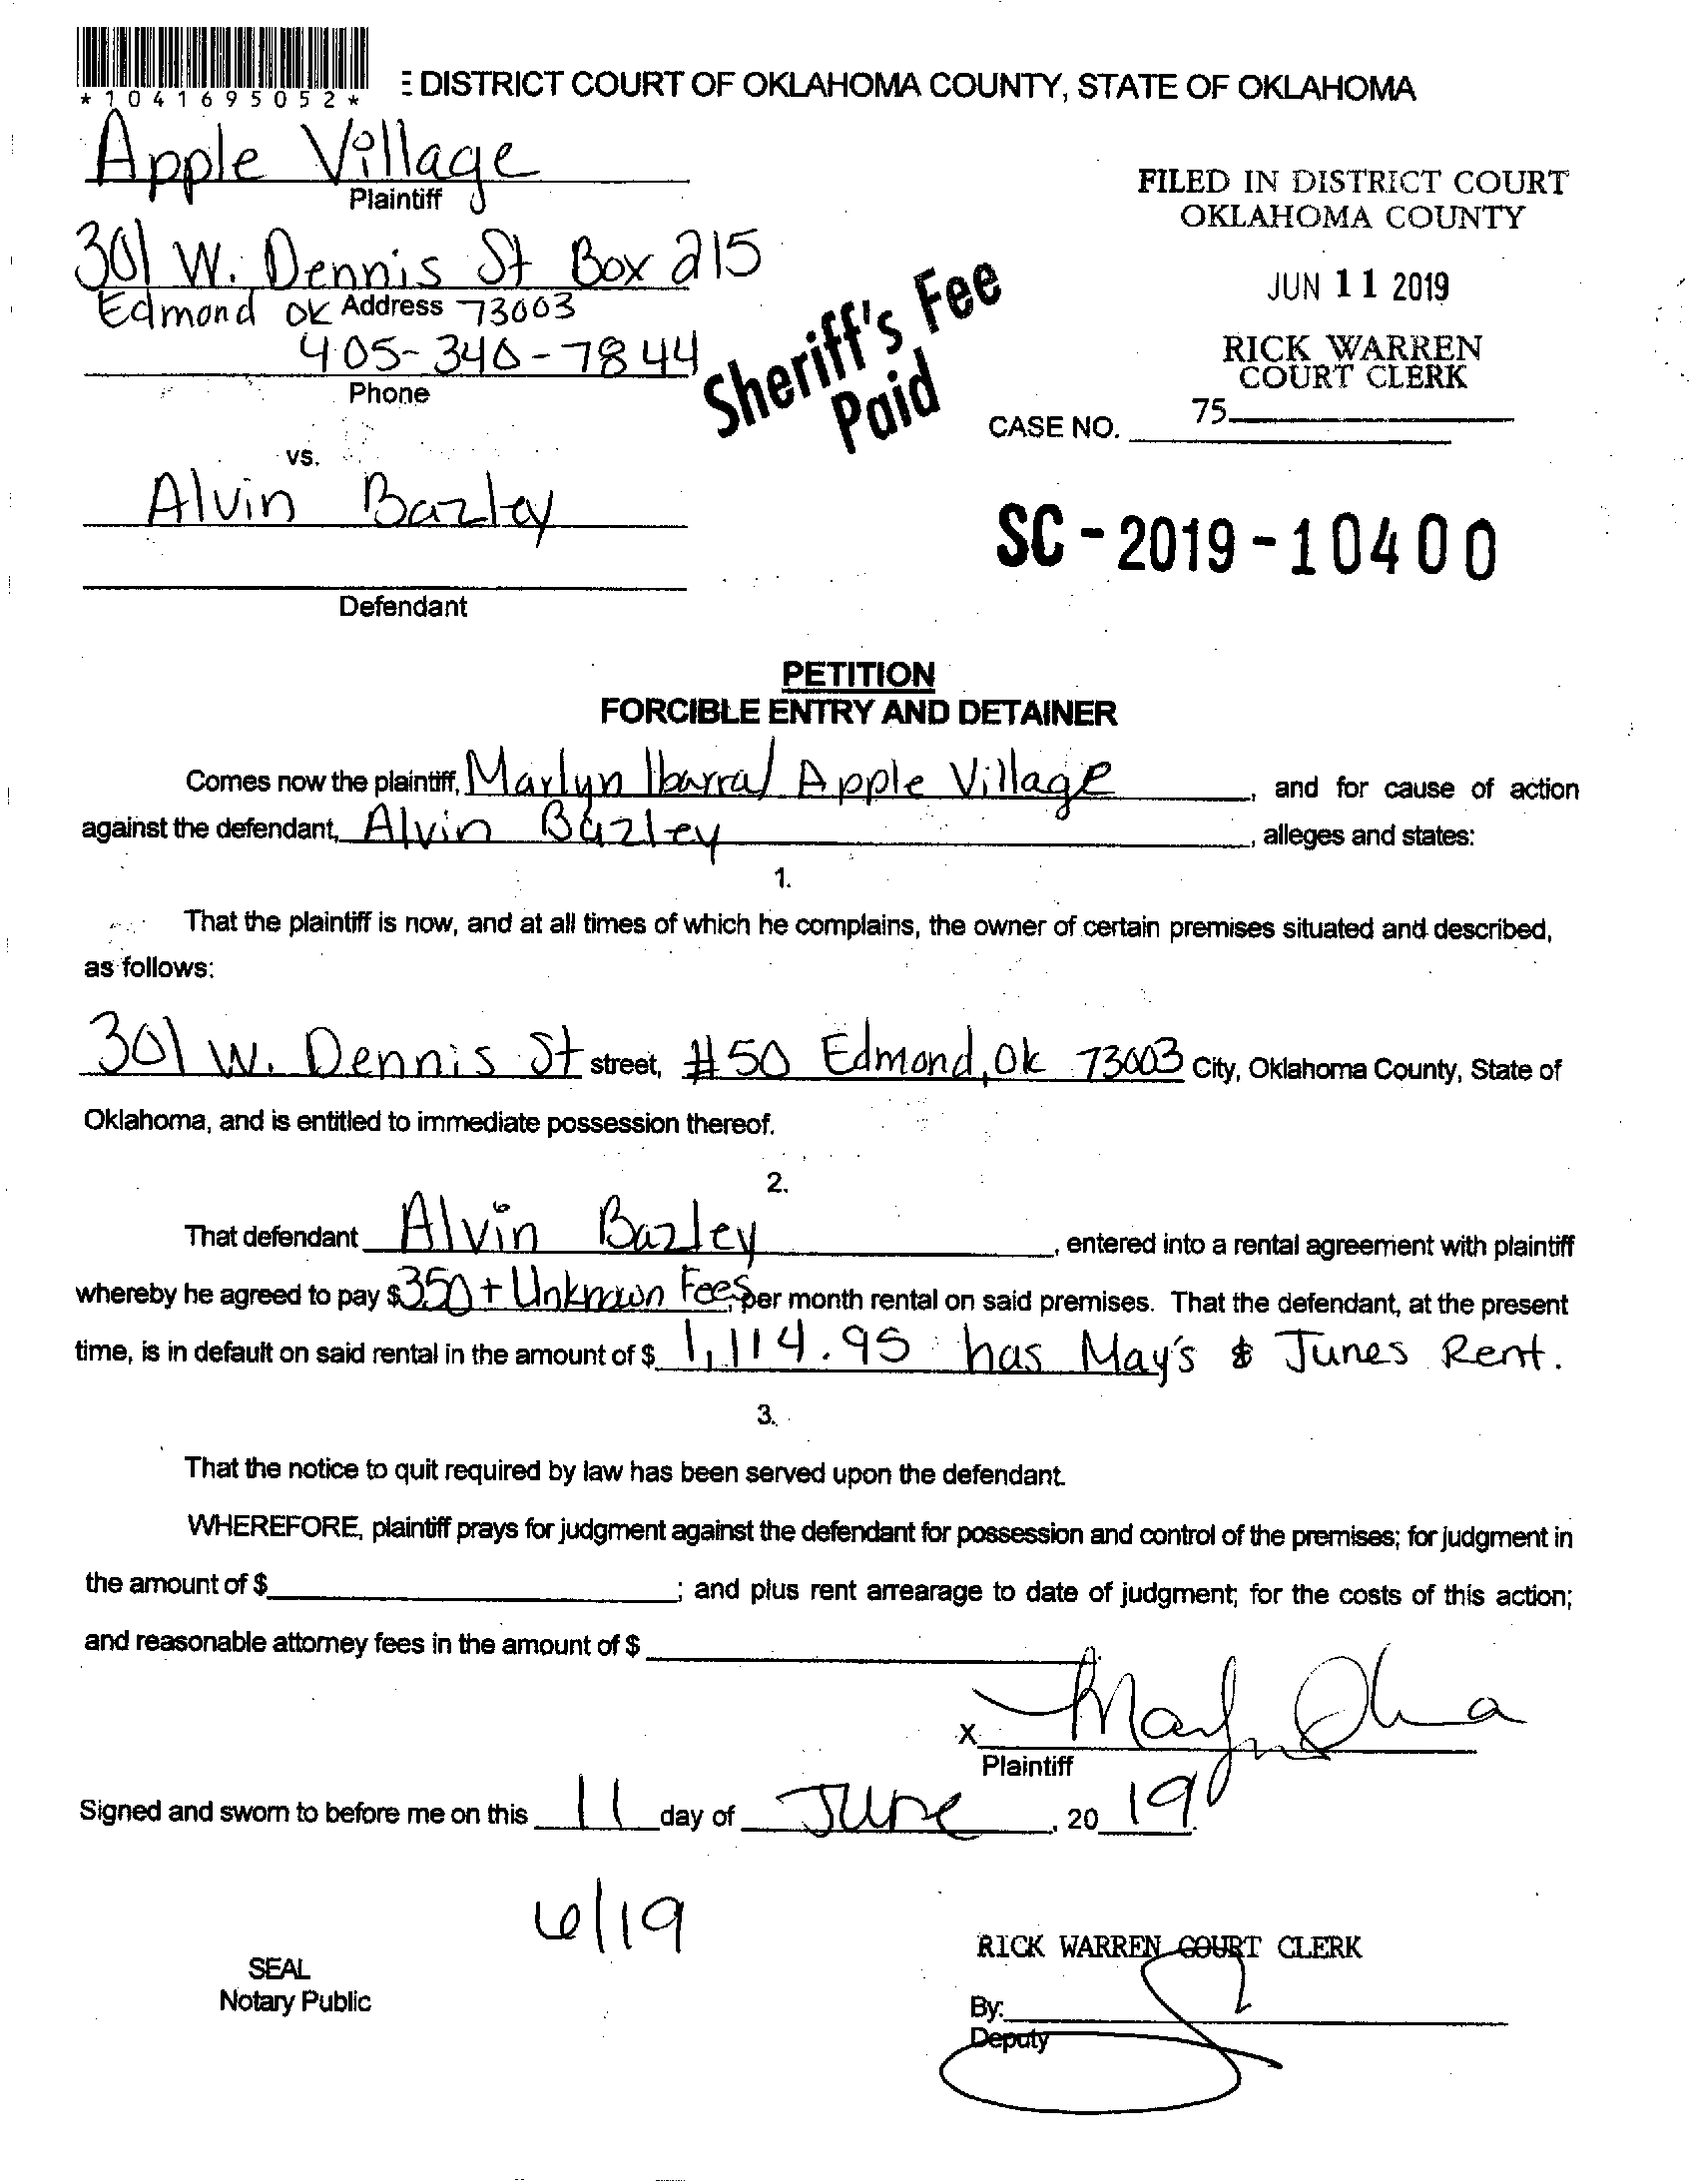 *1041695052*
E DISTRICT COURT OF OKLAHOMA COUNTY, STATE OF OKLAHOMA
Apple Village
Plaintiff
301 W. Dennis St Box 215
Edmond OK Address 73003
405-340-7844
Phone
FILED IN DISTRICT COURT
OKLAHOMA COUNTY
JUN 11 2019
RICK WARREN
COURT CLERK
75
Sheriff's Fee
Paid
CASE NO.
vs.
Alvin Bazley
SC-2019-10400
Defendant
PETITION
FORCIBLE ENTRY AND DETAINER
Comes now the plaintiff, Marlyn Ibarra/ Apple Village, and for cause of action
against the defendant, Alvin Bazley, alleges and states:
1.
That the plaintiff is now, and at all times of which he complains, the owner of certain premises situated and described,
as follows:
301 W. Dennis St street, #50 Edmond, Ok 73003 City, Oklahoma County, State of
Oklahoma, and is entitled to immediate possession thereof.
2.
That defendant Alvin Bazley, entered into a rental agreement with plaintiff
whereby he agreed to pay $350 + Unknown Fees, per month rental on said premises. That the defendant, at the present
time, is in default on said rental in the amount of $ 1,114.95 has May's & Junes Rent.
3.
That the notice to quit required by law has been served upon the defendant.
WHEREFORE, plaintiff prays for judgment against the defendant for possession and control of the premises; for judgment in
the amount of $; and plus rent arrearage to date of judgment; for the costs of this action;
and reasonable attorney fees in the amount of $
X
Plaintiff
Signed and sworn to before me on this 11 day of June, 2019.
6/19
SEAL
Notary Public
RICK WARREN COURT CLERK
By:
Deputy